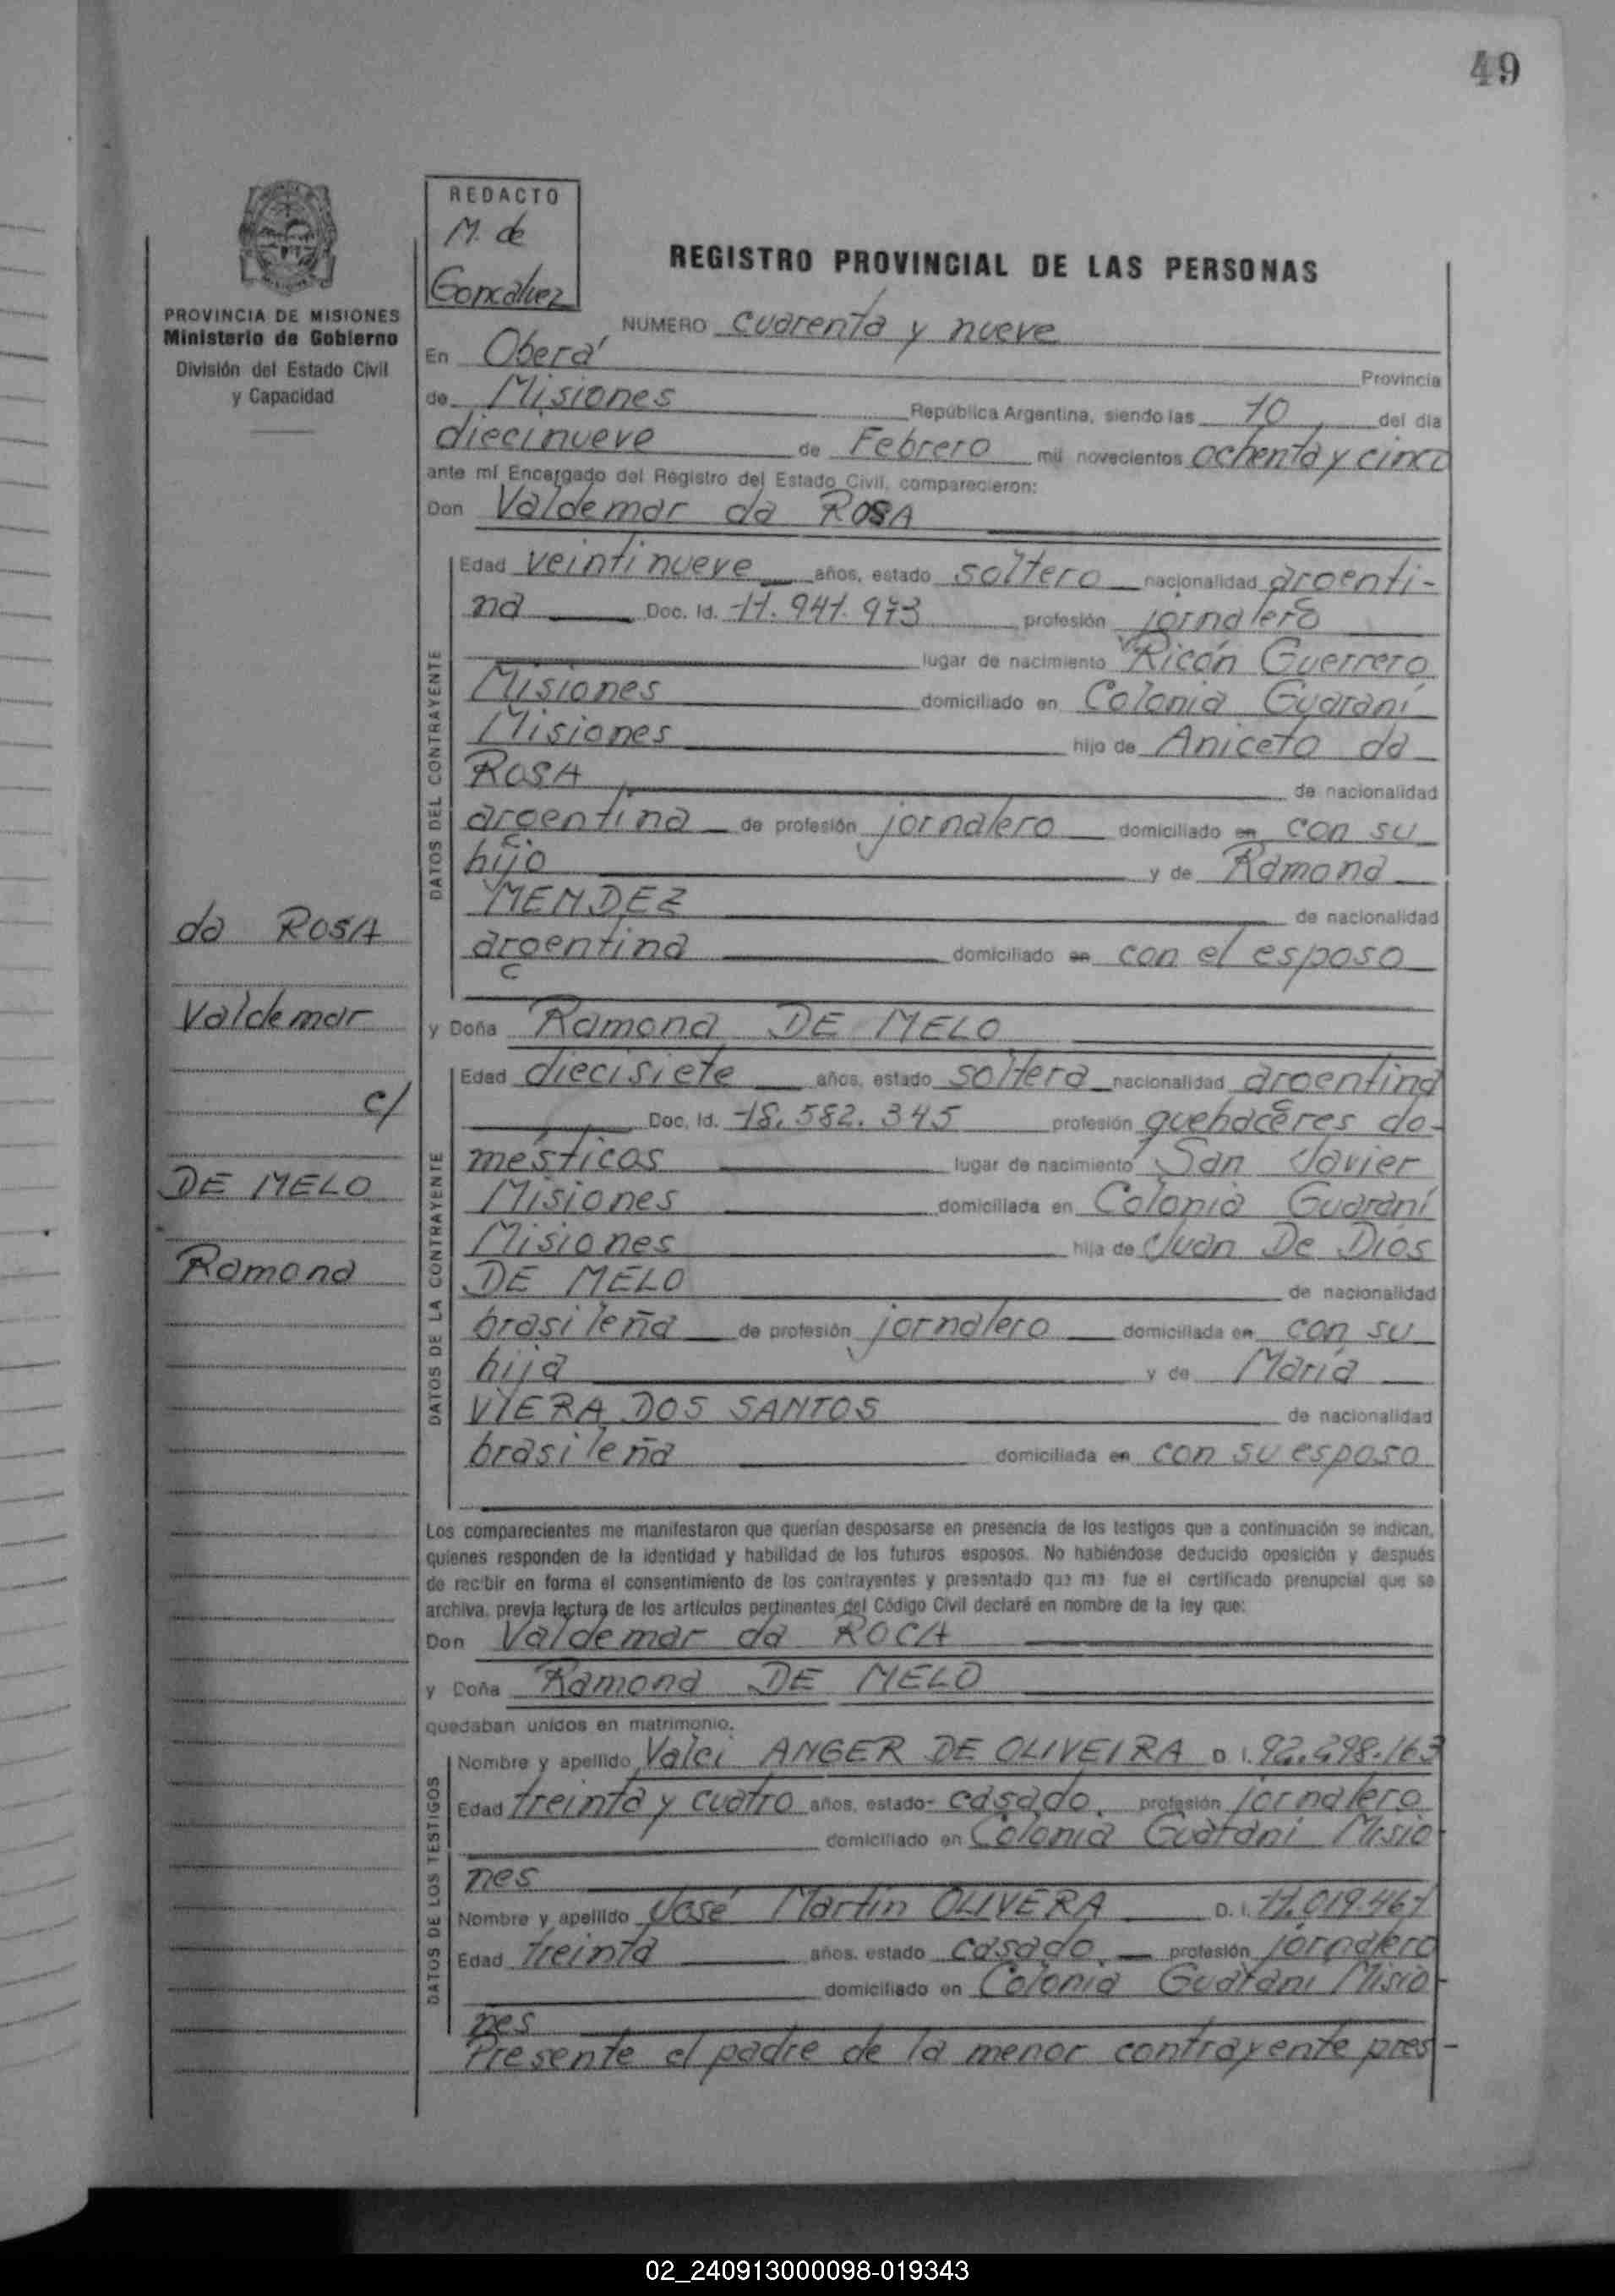 49
REDACTO
M. de
Goncalvez
PROVINCIA DE MISIONES
Ministerio de Gobierno
División del Estado Civil
y Capacidad
REGISTRO PROVINCIAL DE LAS PERSONAS
NUMERO cuarenta y nueve
En Oberá Provincia
de Misiones República Argentina, siendo las 10 del día
diecinueve de Febrero mil novecientos ochenta y cinco
ante mí Encargado del Registro del Estado Civil, comparecieron:
Don Valdemar da ROSA
DATOS DEL CONTRAYENTE
Edad veintinueve años, estado soltero nacionalidad argenti-
na Doc. Id. 11.941.973 profesión jornalero
lugar de nacimiento Ricón Guerrero
Misiones domiciliado en Colonia Guaraní
Misiones hijo de Aniceto da
ROSA de nacionalidad
argentina de profesión jornalero domiciliado en con su
hijo y de Ramona
MENDEZ de nacionalidad
argentina domiciliado en con el esposo
da ROSA
Valdemar
c/
DE MELO
Ramona
y Doña Ramona DE MELO
DATOS DE LA CONTRAYENTE
Edad diecisiete años, estado soltera nacionalidad argentina
Doc. Id. 18.582.345 profesión quehaceres do-
mésticos lugar de nacimiento San Javier
Misiones domiciliada en Colonia Guaraní
Misiones hija de Juan De Dios
DE MELO de nacionalidad
brasileña de profesión jornalero domiciliada en con su
hija y de María
VIERA DOS SANTOS de nacionalidad
brasileña domiciliada en con su esposo
Los comparecientes me manifestaron que querían desposarse en presencia de los testigos que a continuación se indican,
quienes responden de la identidad y habilidad de los futuros esposos. No habiéndose deducido oposición y después
de recibir en forma el consentimiento de los contrayentes y presentado que me fue el certificado prenupcial que se
archiva, previa lectura de los artículos pertinentes del Código Civil declaré en nombre de la ley que:
Don Valdemar da ROCA
y Doña Ramona DE MELO
quedaban unidos en matrimonio.
DATOS DE LOS TESTIGOS
Nombre y apellido Valci ANGER DE OLIVEIRA D. I. 92.298.163
Edad treinta y cuatro años, estado casado. profesión jornalero
domiciliado en Colonia Guaraní Misio
nes
Nombre y apellido José Martín OLIVERA D. I. 11.019.461
Edad treinta años, estado casado. profesión jornalero
domiciliado en Colonia Guaraní Misio-
nes
Presente el padre de la menor contrayente pres-
02_240913000098-019343